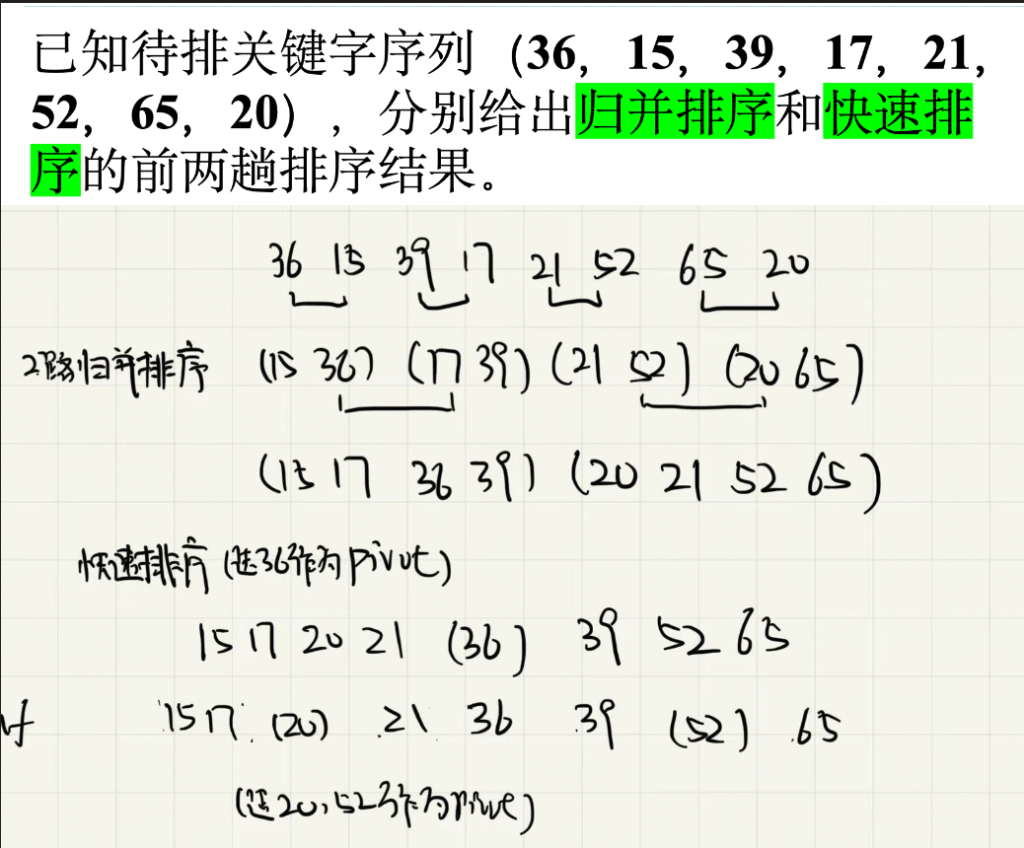 已知待排关键字序列（36，15，39，17，21，
52，65，20），分别给出归并排序和快速排
序的前两趟排序结果。
36 15 39 17 21 52 65 20
2路归并排序 (15 36) (17 39) (21 52) (20 65)
(15 17 36 39) (20 21 52 65)
快速排序 (选36作为pivot)
15 17 20 21 (36) 39 52 65
15 17 (20) 21 36 39 (52) 65
(选20,52作为pivot)